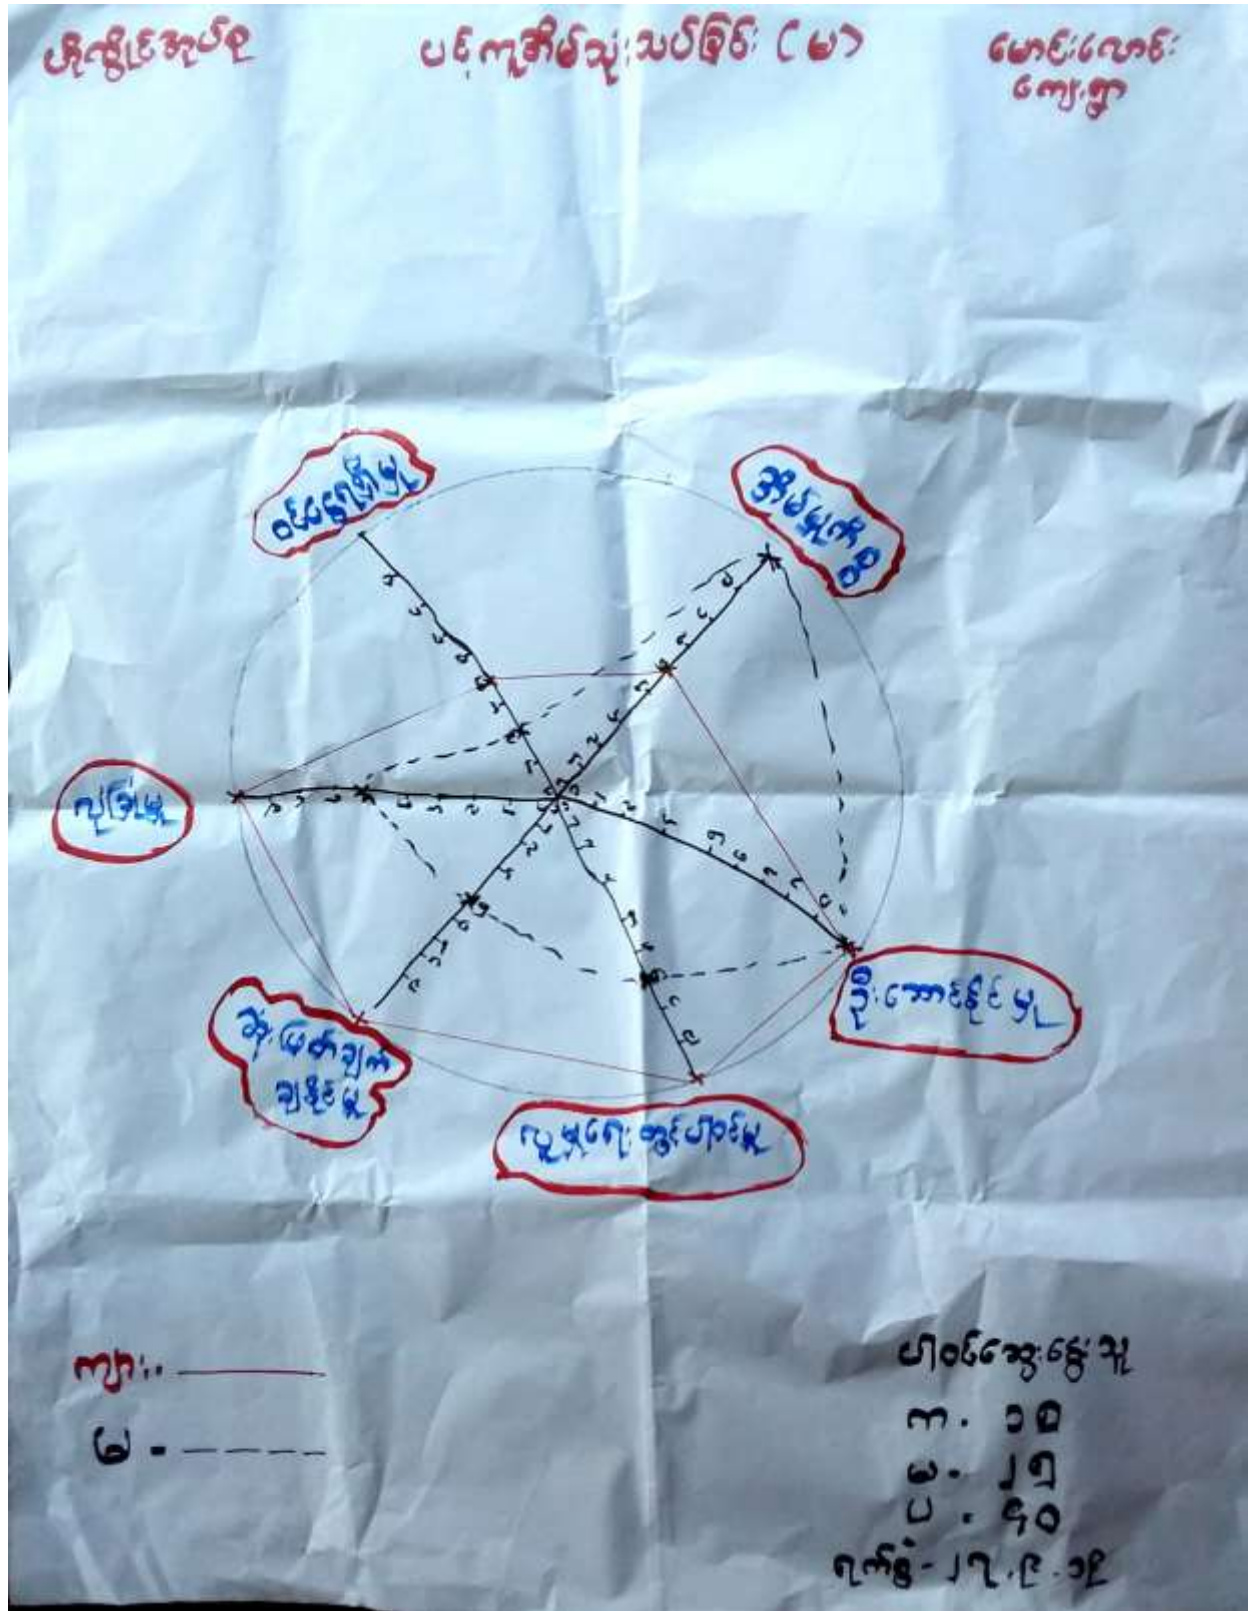 ဟိုကွိုင်အုပ်စု
ပင့်ကူအိမ်သုံးသပ်ခြင်း (မ)
မောင်းလောင်း
ကျေးရွာ
ဝင်ငွေရရှိမှု
အိမ်မှုကိစ္စ
လုံခြုံမှု
ဦးဆောင်နိုင်မှု
ဆုံးဖြတ်ချက်
ချနိုင်မှု
လူမှုရေးတွင်ပါဝင်မှု
ကျား -
မ -
ပါဝင်ဆွေးနွေးသူ
က - ၁၅
မ - ၂၅
ပ - ၄၀
ရက်စွဲ - ၂၇.၉.၁၉